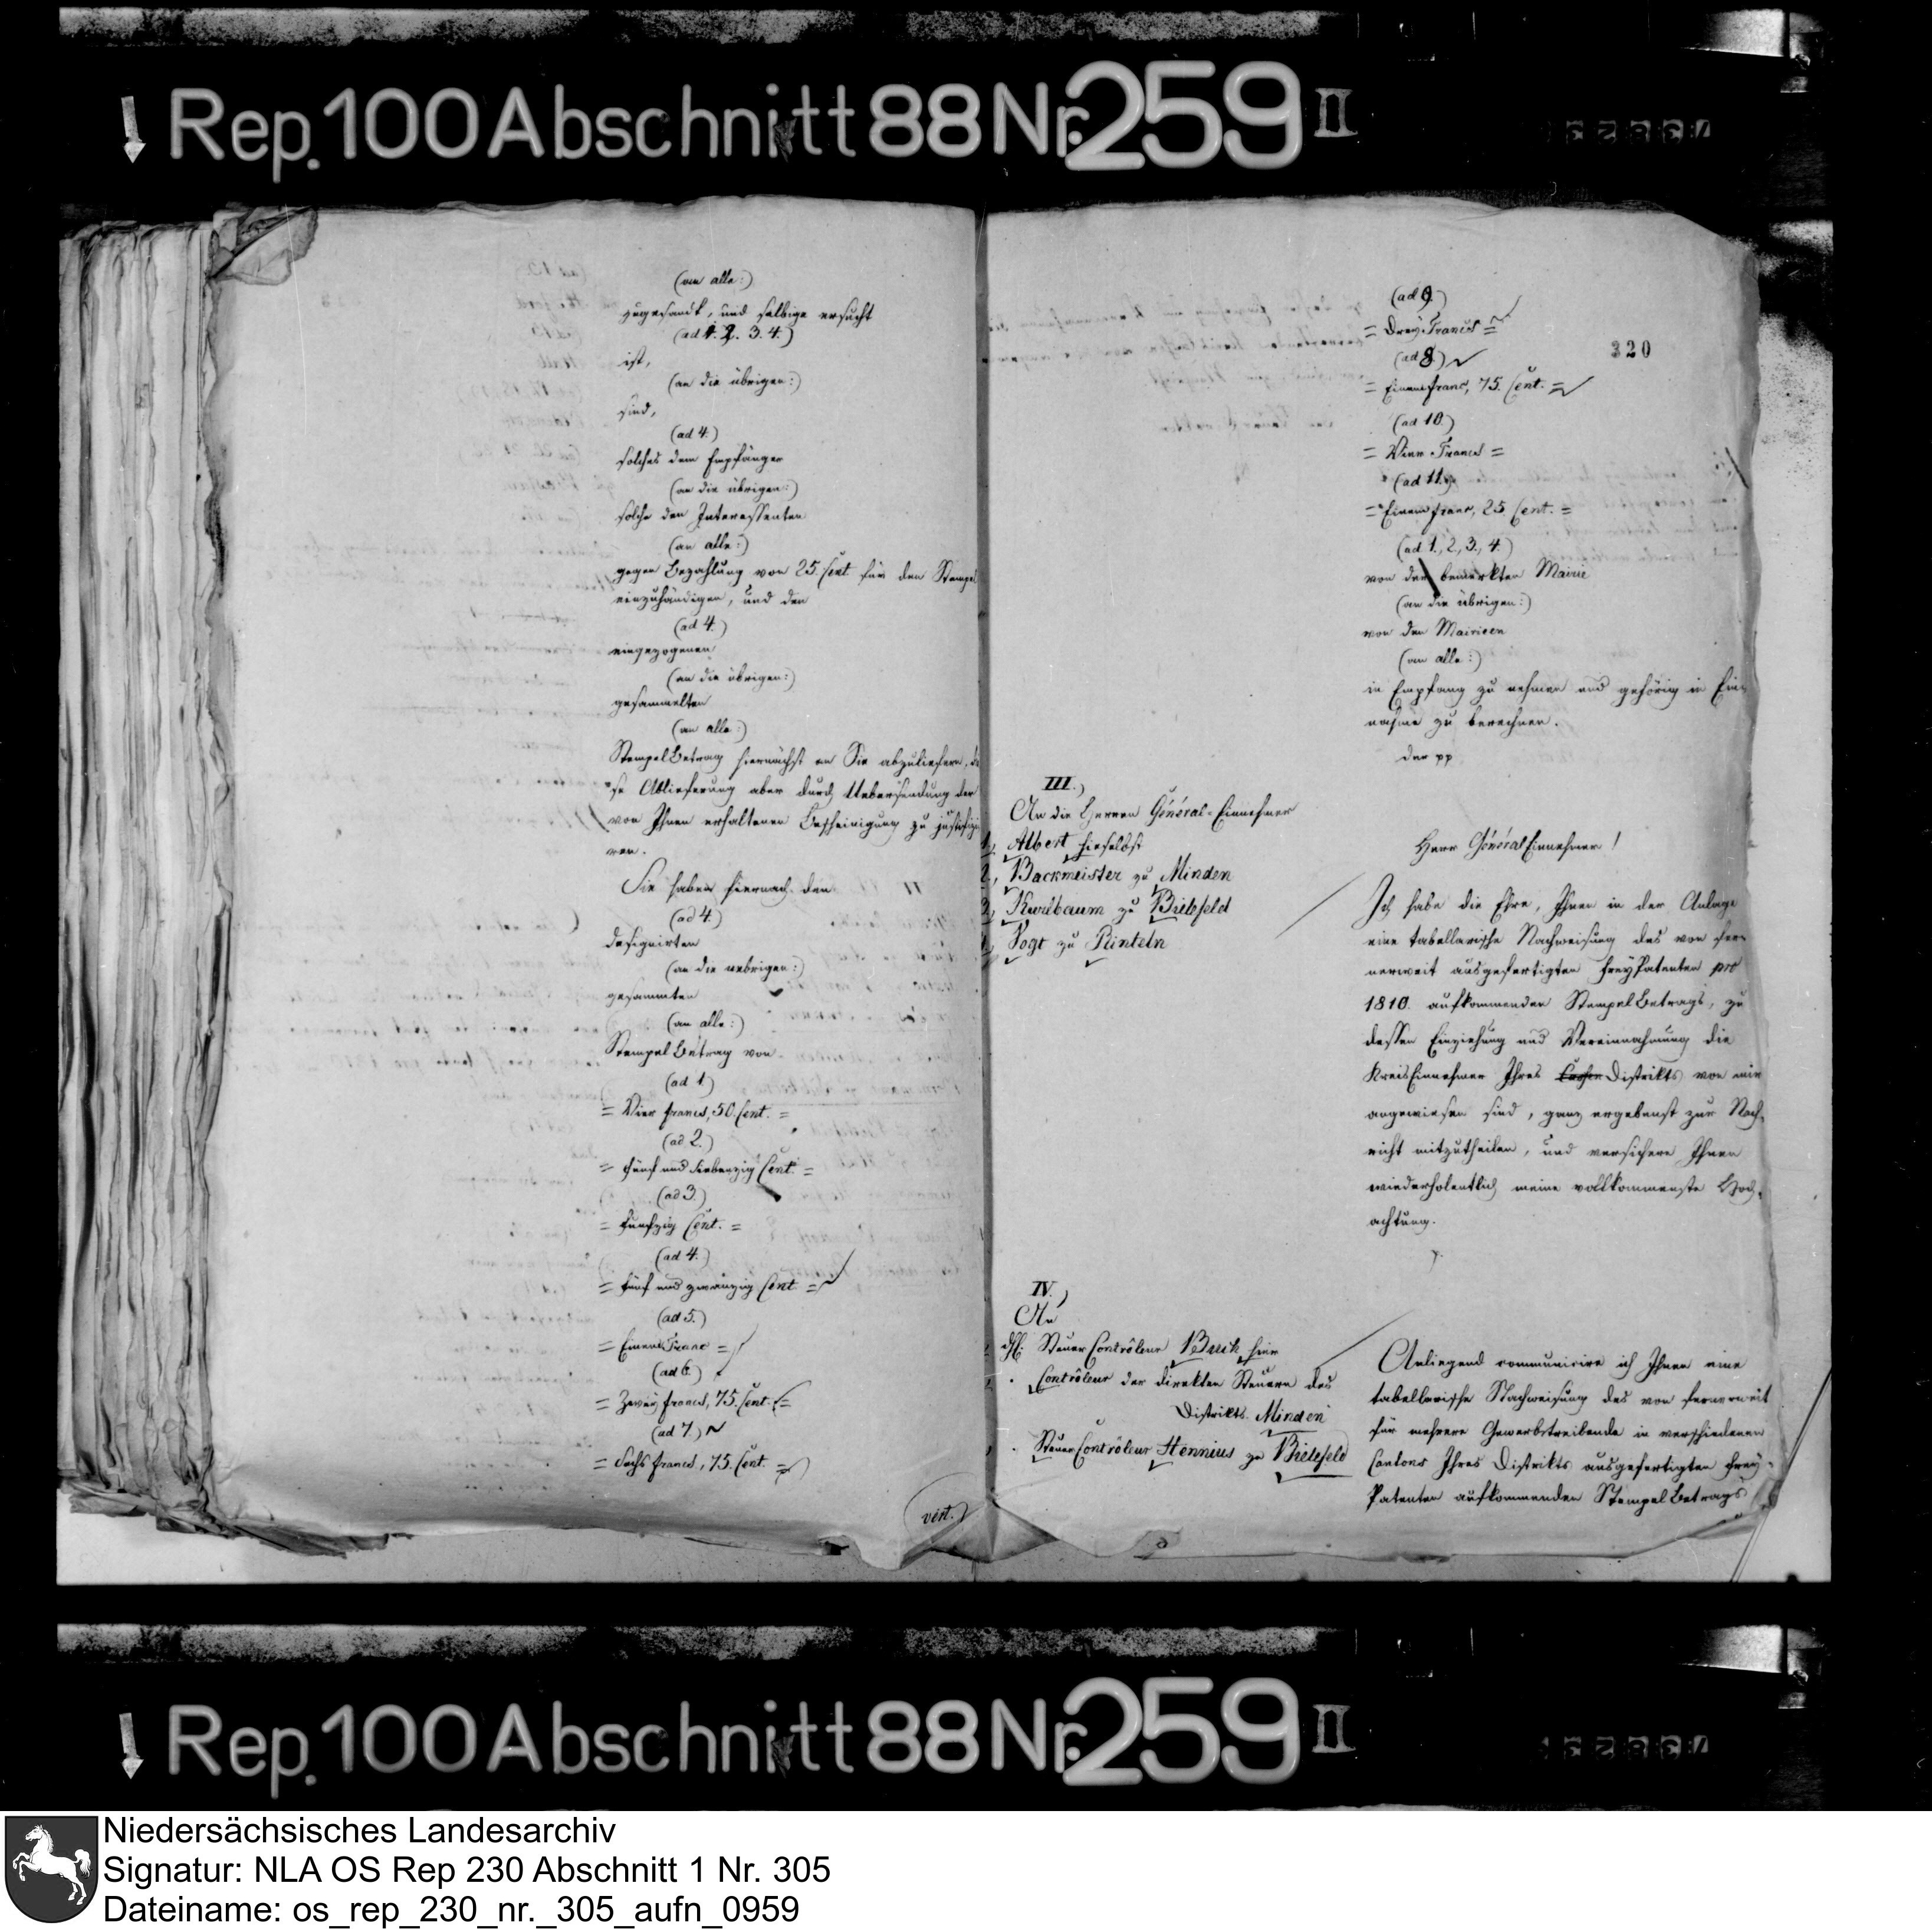 Rep. 100 Abschnitt 88 Nr. 259 II
(an alle:)
zugesandt, und selbige ersucht
(ad 1. 2. 3. 4.)
ist,
(an die übrigen:)
sind,
(ad 4.)
solches dem Empfänger
(an die übrigen:)
solche den Interessenten
(an alle:)
gegen Bezahlung von 25. Cent. für den Stempel
einzuhändigen, und den
(ad 4.)
eingezogenen
(an die übrigen:)
gesammelten
(an alle:)
StempelBetrag hiernächst an Sie abzuliefern, die
se Ablieferung aber durch Uebersendung der
von Ihnen erhaltenen Bescheinigung zu justifizi
ren.
Sie haben hiernach den
(ad 4.)
designirten
(an die uebrigen:)
gesammten
(an alle:)
StempelBetrag von
(ad 1.)
= Vier francs, 50. Cent. =
(ad 2.)
= fünf und siebenzig Cent. =
(ad 3.)
= funfzig Cent. =
(ad 4.)
= fünf und zwanzig Cent =
(ad 5.)
= Einen Franc =
(ad 6.)
= Zwey francs, 75. Cent. =
(ad 7.)
= Sechs francs, 75. Cent. =
vert.
320
(ad 9.)
= Drey Francs =
(ad 8.)
= Einen franc, 75. Cent. =
(ad 10.)
= Vier Francs =
(ad 11.)
= Einen franc, 25. Cent. =
(ad 1., 2., 3., 4.)
von der bemerkten Mairie
(an die übrigen:)
von den Mairieen
(an alle:)
in Empfang zu nehmen und gehörig in Ein
nahme zu berechnen.
der pp
III.)
An die Herren Général-Einnehmer
1., Albert hieselbst
2., Backmeister zu Minden
3., Kurlbaum zu Bielefeld
4., Vogt zu Rinteln
Herr GénéralEinnehmer!
Ich habe die Ehre, Ihnen in der Anlage
eine tabellarische Nachweisung des von fer-
nerweit ausgefertigten freyPatenten pro
1810. aufkommenden StempelBetrags, zu
dessen Einziehung und Vereinnahmung die
KreisEinnehmer Ihres Distrikts von mir
angewiesen sind, ganz ergebenst zur Nach-
richt mitzutheilen, und versichere Ihnen
wiederholentlich meine vollkommenste Hoch-
achtung.
IV.)
An
Steuer Contrôleur Buch hier
Contrôleur der direkten Steuern des
Distrikts Minden
Steuer Contrôleur Hennius zu Bielefeld
Anliegend communicire ich Ihnen eine
tabellarische Nachweisung des von fernerweit
für mehrere Gewerbetreibende in verschiedenen
Cantons Ihres Distrikts ausgefertigten frey-
Patenten aufkommenden StempelBetrags
Rep. 100 Abschnitt 88 Nr. 259 II
Niedersächsisches Landesarchiv
Signatur: NLA OS Rep 230 Abschnitt 1 Nr. 305
Dateiname: os_rep_230_nr._305_aufn_0959